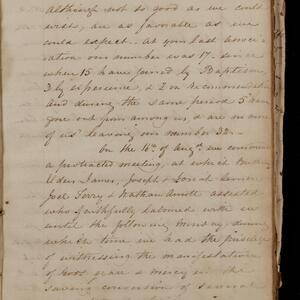 although not so good as we could
wish, are as favorable as we
could expect. At your last associ-
ation our number was 17. since
when 15 have joined by Baptism
3 by experience, & 2 on recommendation
and during the same period 5 have
gone out from among us & are no more
of us: leaving our number 32.
On the 16th of Augt. we commenced
a protracted meeting, at which
Elders James, Joseph &
Joel Terry & Nathan assisted
who faithfully labored with us
until the following monday during
which time we had the privilege
of witnessing the manifestations
of God's grace & mercy in the
saving conversion of several